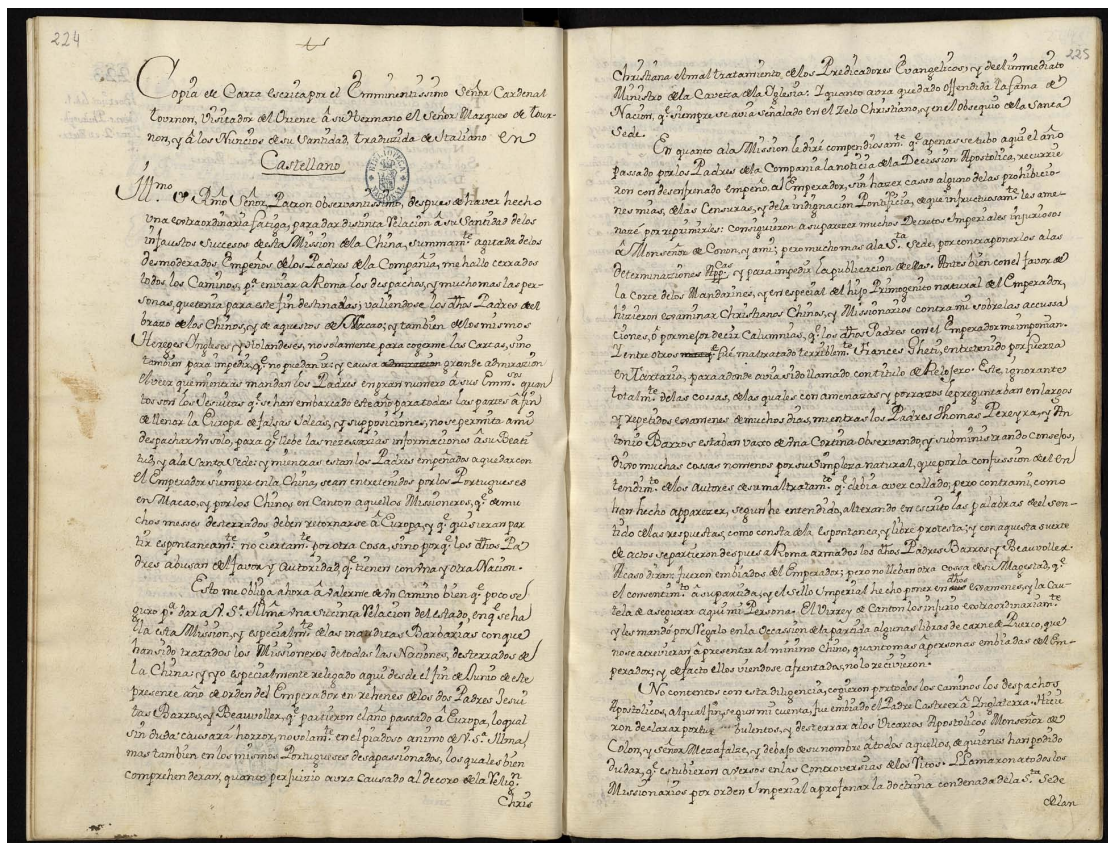 224
Copia de Carta escrita por el Emminentissimo Señor Cardenal
tournon, Visitador del Oriente â su Hermano el Señor Marques de tour-
non, y â los Nuncios de su Santidad, traduzida de Italiano en
Castellano
Ill.mo y Rmõ Señor, Patron Observantissimo, despues de haver hecho
vna extraordinaria fatiga, para dar distinta Relacion â su Santidad de los
infaustos Successos de esta Mission de la China, summam.te agitada de los
desmoderados Empeños de los Padres de la Compañia, me hallo cerrados
todos los Caminos, p.a enviar a Roma los despachos, y mucho mas las per-
sonas, que tenia para este fin destinadas; valiendose los dhos Padres del
brazo de los Chinos, y de aquestos de Macao; y tambien de los mismos
Hereges Ingleses y Holandeses, no solamente para cogerme las Cartas, sino
tambien para impedir, q.e no puedan ir; y causa grande admiracion
el veer que mientras mandan los Padres en gran numero â sus Emm.os quan
tos son los Jesuitas q.e se han embarcado este año para todas las partes â fin
de llenar la Europa de falsas Ideas, y supposiciones, no se permita a mi
despachar vn solo, para q.e lleve las nezessarias informaciones â su Beati
tud, y a la Santa Sede: y mientras estan los Padres empeñados a quedar con
el Emperador siempre en la China, sean entretenidos por los Portugueses
en Macao, y por los Chinos en Canton aquellos Missioneros, q.e de mu
chos meses desterrados deben retornarse â Europa, y q.e quisieran par
tir espontaneam.te no ciertam.te por otra cosa, sino porq.e los dhos Pa
dres abusan del favor y Autoridad q.e tienen con vna y otra Nacion.
Esto me obliga ahora â valerme de vn camino bien q.e poco se
guro p.a dar a V. S.a Illma vna sucinta Relacion del estado, en q.e se ha
lla esta Mission, y especialm.te de las inauditas Barbarias con que
han sido tratados los Missioneros de todas las Naciones, desterrados de
la China: y yo especialmente relegado aqui desde el fin de Junio de este
presente año de orden del Emperador en rehenes de los dos Padres Jesui
tas Barros, y Beauvoller, q.e partieron el año passado â Europa, lo qual
sin duda causará horror, no solam.te en el piadoso animo de V. S.a Illma,
mas tambien en los mismos Portugueses desapassionados, los quales bien
comprehenderan, quanto perjuizio avra causado al decoro de la Relig.n
Chris
225
Christiana el mal tratamiento, de los Predicadores Evangelicos, y de el immediato
Ministro de la Caveza de la Iglesia: I quanto avra quedado Offendida la fama de
Nacion, q.e siempre se avia señalado en el Zelo Christiano, y en el Obsequio de la Santa
Sede.
En quanto a la Mission le diré compendiosam.te q.e apenas se tubo aqui el año
passado por los Padres de la Compania la noticia de la Decission Apostolica, recurrie
ron con desenfrenado empeño al Emperador, sin hazer casso alguno de las prohibicio-
nes mias, de las Censuras, y de la indignacion Pontificia, de que infructuosam.te les ame-
nazé por reprimirles: Consiguieron, a suparezer muchos Decretos Imperiales injuriosos
â Monseñor de Conon, y a mi; pero mucho mas a la S.ta Sede, por contraponerlos a las
determinaziones App.cas y para impedir la publicacion de ellas. Antes bien con el favor de
la Corte de los Mandarines, y en especial del hijo Primogenito natural del Emperador,
hizieron examinar Christianos Chinos, y Missionarios contra mi sobre las accussa
ciones, ó por mejor decir Calumnias, q.e los dhos Padres con el Emperador me imponian.
Y entre otros fuè maltratado terriblem.te Frances Gheti, entretenido por fuerza
en Tartaria, para adonde avia sido llamado con titulo de Reloxero. Este, ignorante
totalm.te de las cossas, de las quales con amenazas y porrazos le preguntaban en largos
y repetidos examenes de muchos dias, mientras los Padres Thomas Pereyra, y An
tonio Barros estaban vaxo de vna Cortina Observando, y subministrando Consejos,
dixo muchas cossas no menos por su Simpleza natural, que por la confussion de el en
tendim.to de los Autores de su maltratam.to q.e debia aver callado; pero contra mi, como
hen hecho apparezer, segun he entendido, alterando en escrito las palabras de el sen-
tido de las respuestas, como consta de la espontanea, y libre protesta; y con aquesta suerte
de actos se partieron despues a Roma armados los dhos Padres Barros, y Beauvoller.
Acaso diran: fueron embiados del Emperador; pero no lleban otra cossa de si Magestad, q.e
el consentim.to a su partida, y el sello Imperial hecho poner en dhos examenes, y la Cau-
tela de asegurar aqui mi Persona. El Virrey de Canton los injurio extraordinariam.te
y les mandó por Regalo en la Occassion de la partida algunas libras de carne de Puerco, que
no se atrevieran â presentar al minimo Chino, quanto mas â personas embiadas del Em-
perador; y de facto ellos viendose afrentados, no lo recivieron.
No contentos con esta diligencia, cogieron por todos los caminos los despachos
Apostolicos, al qual fin, segun mi cuenta, fue embiado el Padre Castneer â Inglaterra. Hicie
ron declarar por bulentos, y desterrar a los Vicarios Apostolicos Monseñor de
Colon, y Señor Mezafalze, y debajo de su nombre â todos aquellos, de quienes han podido
dudar, q.e estubieron aversos en las Controversias de los Ritos. LLamaron a todos los
Missionarios por orden Imperial a profanar la doctrina condenada de la S.ta Sede
delan